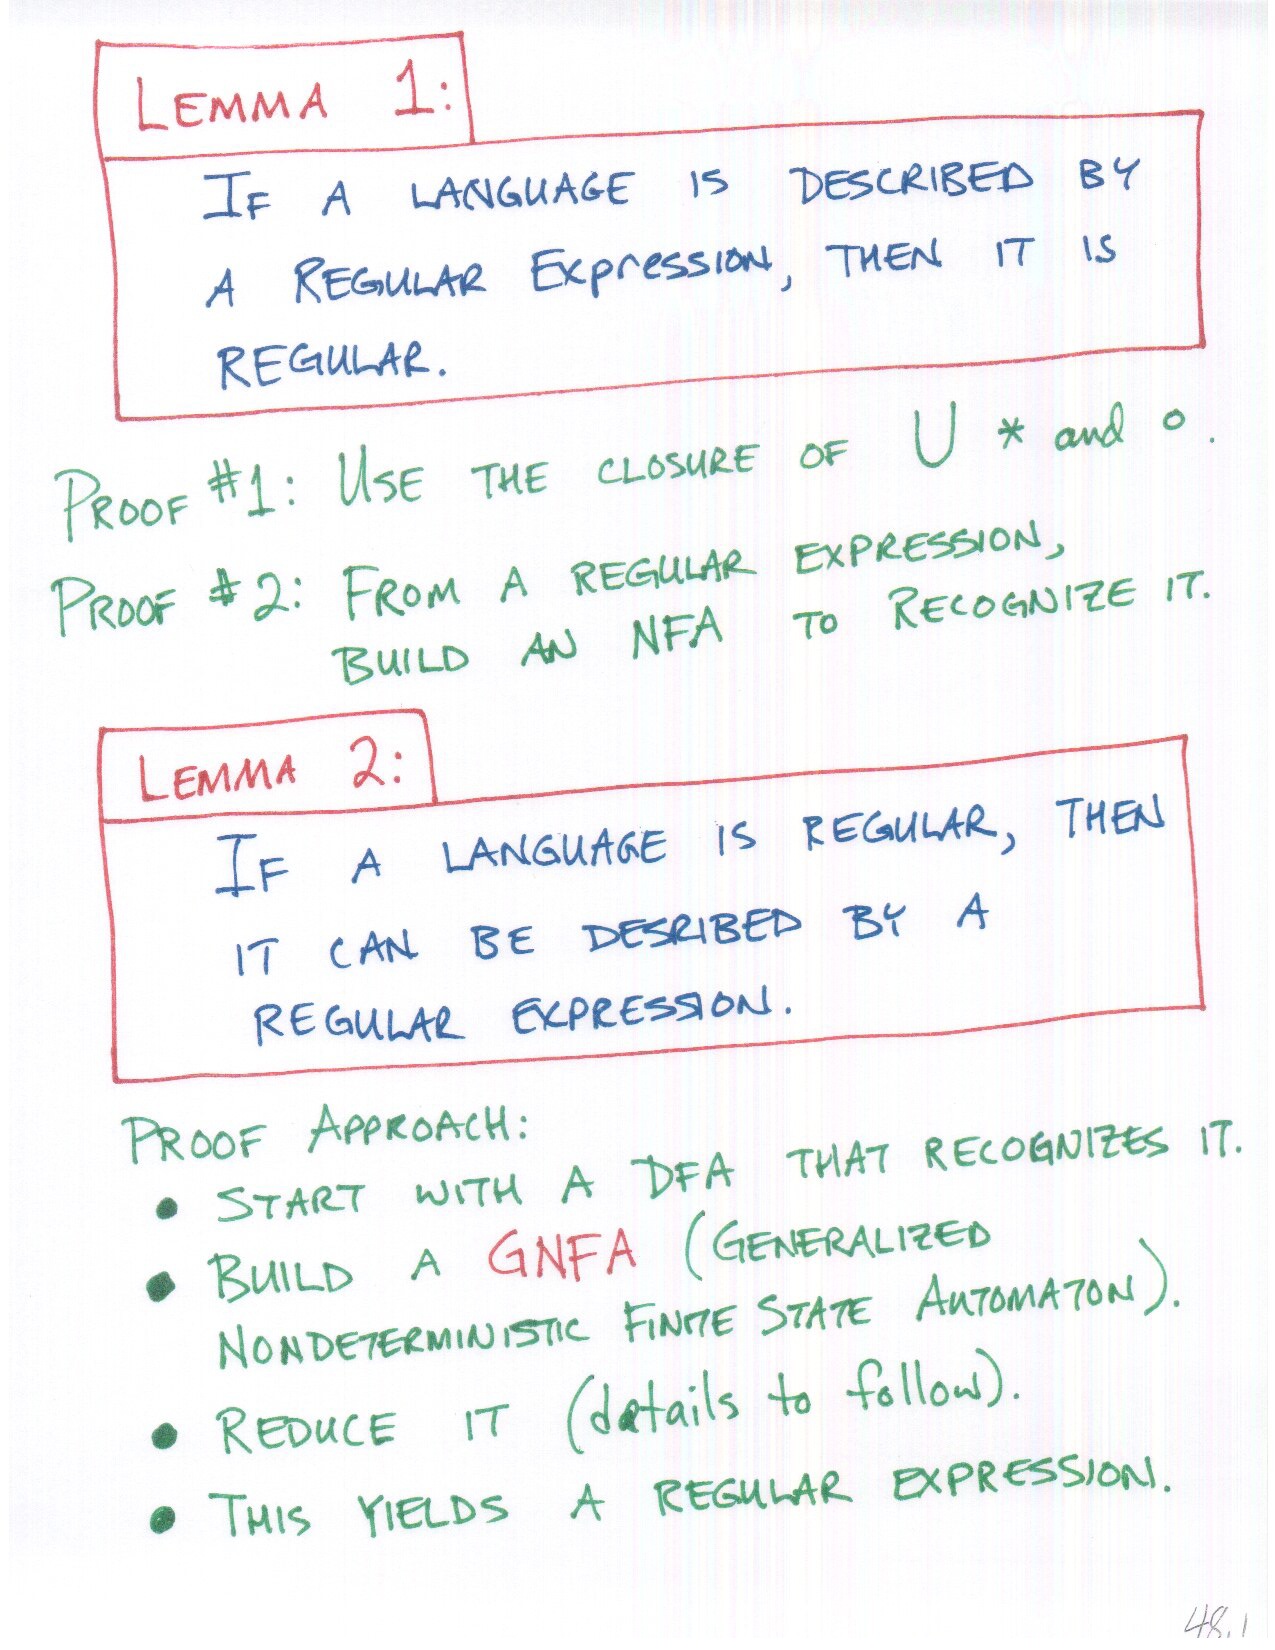 LEMMA 1:
IF A LANGUAGE IS DESCRIBED BY
A REGULAR Expression, THEN IT IS
REGULAR.
PROOF #1: USE THE CLOSURE OF U * and ∘.
PROOF #2: FROM A REGULAR EXPRESSION,
BUILD AN NFA TO RECOGNIZE IT.
LEMMA 2:
IF A LANGUAGE IS REGULAR, THEN
IT CAN BE DESRIBED BY A
REGULAR EXPRESSION.
PROOF APPROACH:
• START WITH A DFA THAT RECOGNIZES IT.
• BUILD A GNFA (GENERALIZED
NONDETERMINISTIC FINITE STATE AUTOMATON).
• REDUCE IT (details to follow).
• THIS YIELDS A REGULAR EXPRESSION.
48.1